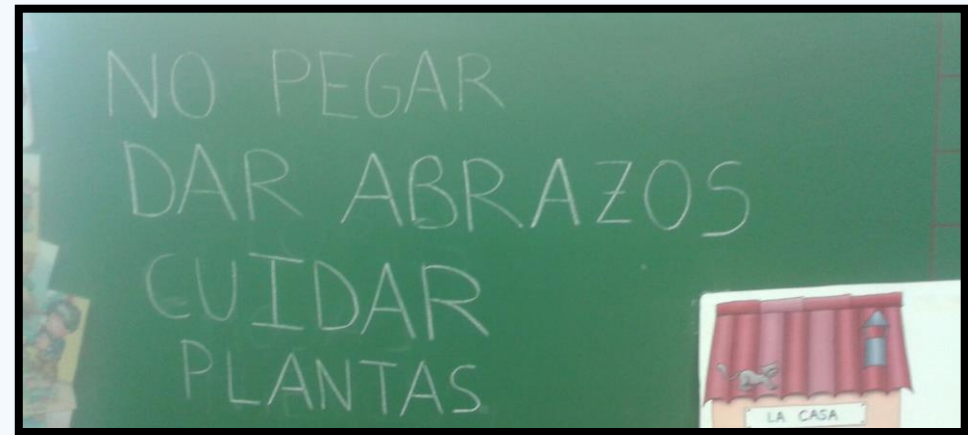 NO PEGAR
DAR ABRAZOS
CUIDAR
PLANTAS
LA CASA